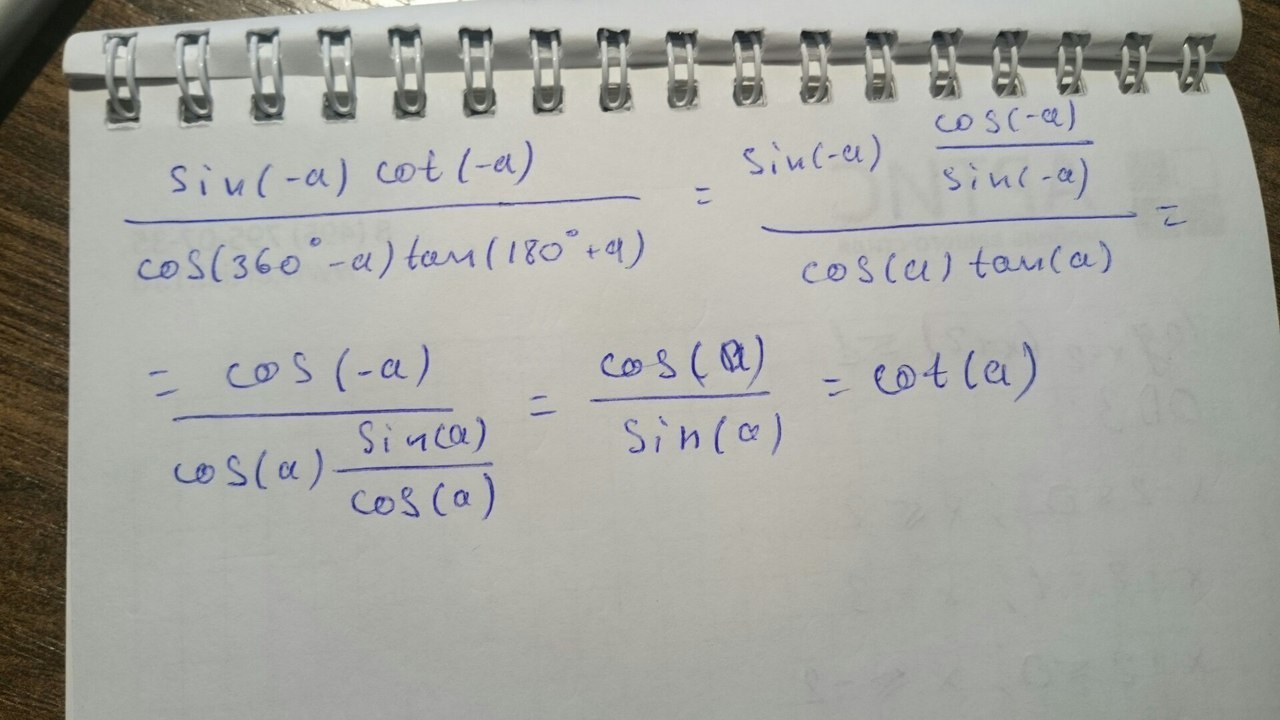 sin(-a) cot(-a) / cos(360°-a) tan(180°+a) = sin(-a) cos(-a)/sin(-a) / cos(a) tan(a) =
= cos(-a) / cos(a) sin(a)/cos(a) = cos(a) / sin(a) = cot(a)